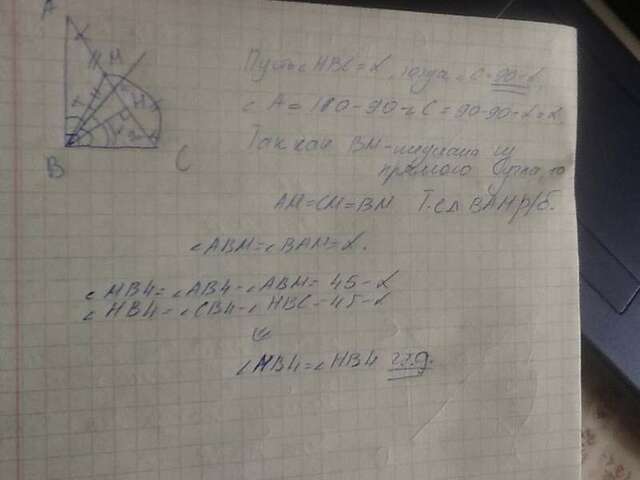 A
M
H
B
C
Пусть ∠HBC = α, тогда ∠C = 90-α,
∠A = 180-90-∠C = 90-90-α = α.
Так как BM - медиана из
прямого угла, то
AM=CM=BM Т.е Δ BAM р/б.
∠ABM = ∠BAM = α.
∠MB4 = ∠AB4 - ∠ABM = 45-α
∠HB4 = ∠CB4 - ∠HBC = 45-α
∠MB4 = ∠HB4 ч.т.д.